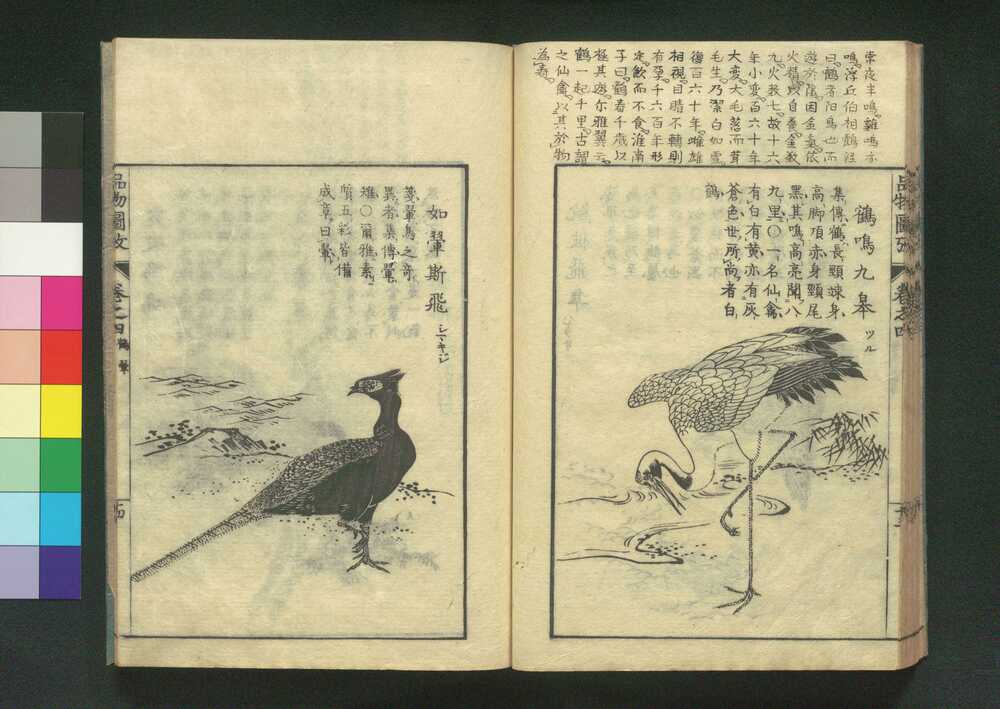 常夜半鳴雞鳴亦
鳴浮丘伯相鶴經
曰鶴者陽鳥也而
遊於陰因金氣依
火精以自養金數
九火數七故十六
年小變百六十年
大變大毛落而茸
毛生乃潔白如雪
復百六十年雌雄
相視目睛不轉則
有孕千六百年形
定飲而不食淮南
子曰鶴壽千歲以
極其遊尓雅翼云
鶴一起千里古謂
之仙禽以其於物
為壽
品物圖攷 卷之四
鶴鳴九皐 ツル
集傳鶴長頸竦身
高脚頂赤身頸尾
黑其鳴高亮聞八
九里〇一名仙禽
有白有黄亦有灰
蒼色世所尚者白
鶴
如翬斯飛
箋翬鳥之奇
異者集傳翬
雉〇爾雅素
質五彩皆備
成章曰翬
品物圖攷 卷之四 鶴 翬